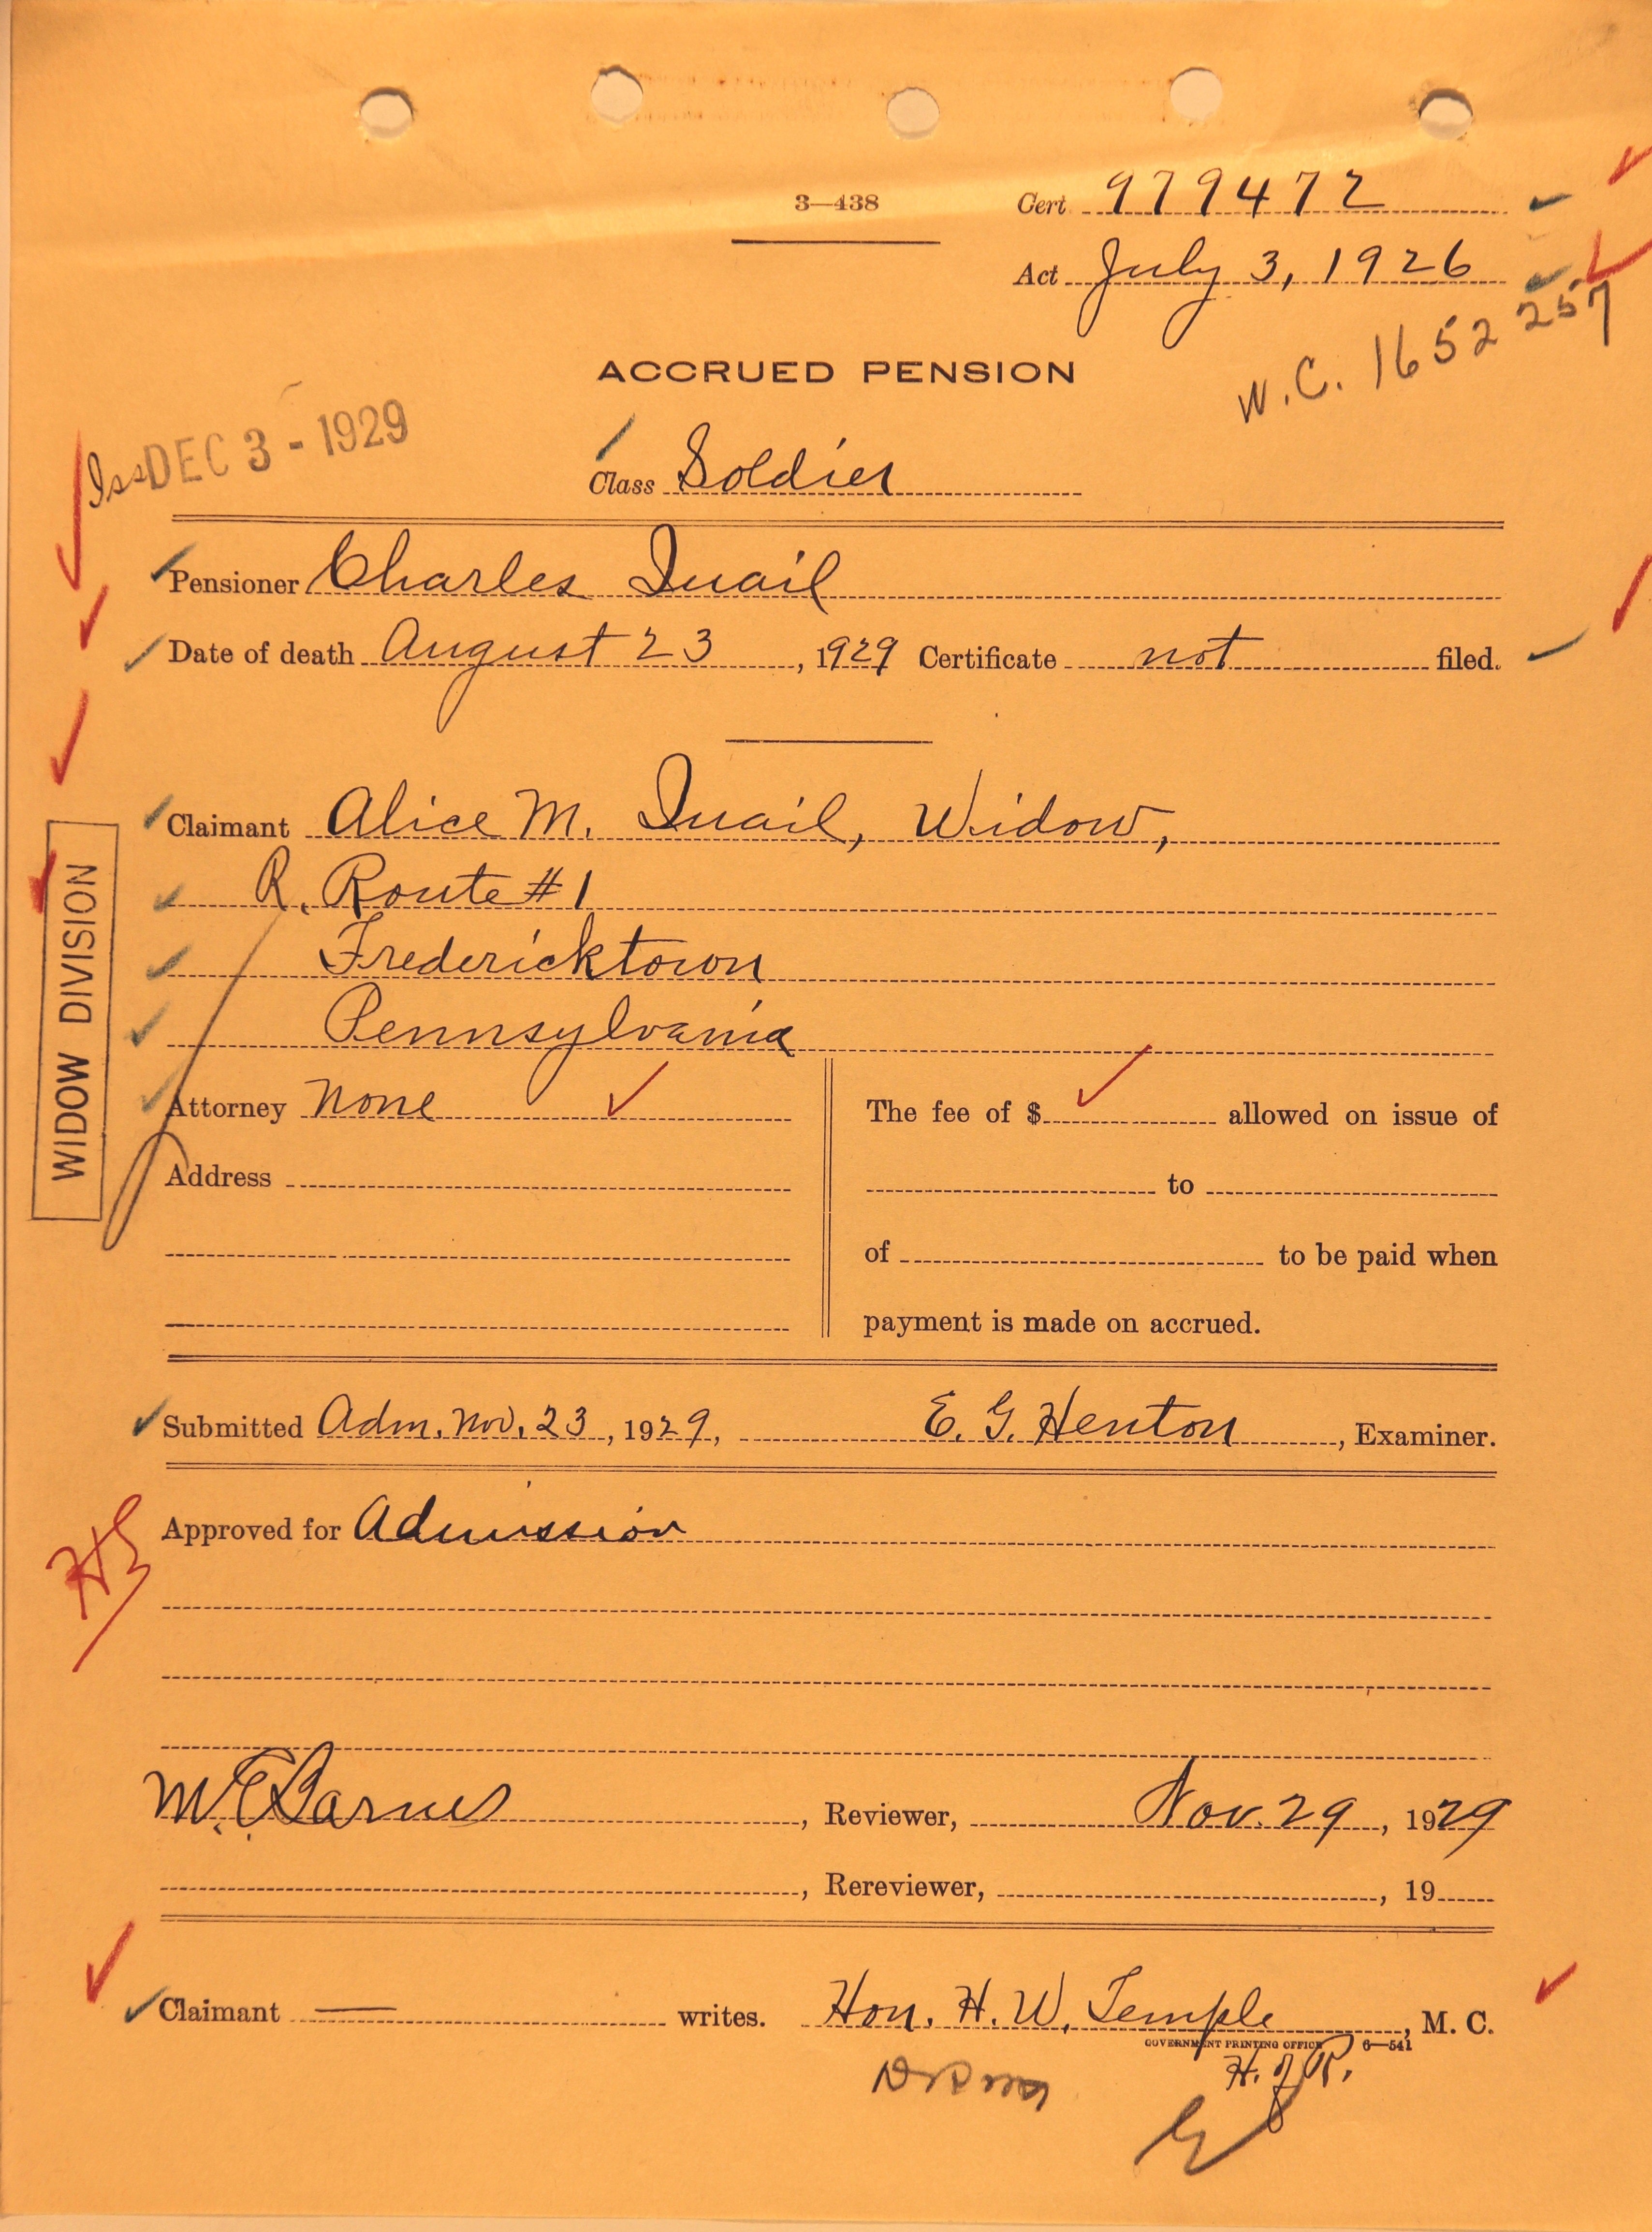 3—438
Cert 979472
Act July 3, 1926
W.C. 1652257
ACCRUED PENSION
Iss DEC 3 - 1929
Class Soldier
Pensioner Charles Quail
Date of death August 23, 1929 Certificate not filed.
Claimant Alice M. Quail, Widow,
R. Route #1
Fredericktown
Pennsylvania
WIDOW DIVISION
Attorney None
Address
The fee of $ allowed on issue of
to
of to be paid when
payment is made on accrued.
Submitted Adm. Nov. 23, 1929, E. G. Henton, Examiner.
Approved for Admission
M. E. Barnes, Reviewer, Nov. 29, 1929
, Rereviewer, , 19
Claimant — writes. Hon. H. W. Temple, M. C.
GOVERNMENT PRINTING OFFICE 6—541
H. of R.